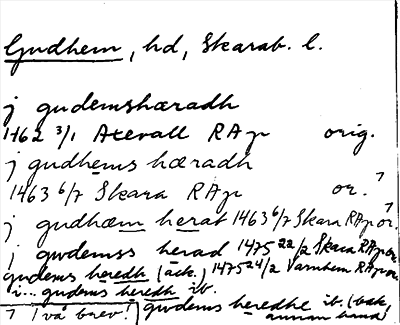 Gudhem, hd, Skarab. l.
j gudemshæradh
1462 3/1 Axevall RAp orig.
j gudhems hæradh
1463 6/7 Skara RAp or.
j gudhæm herat 1463 6/7 Skara RAp or.
j gudemss herad 1475 22/2 Skara RAp or.
gudems heredh (ack.) 1475 24/2 Varnhem RAp or.
i... gudems heredh ib.
två brev! gudems heredhe ib. (bak, annan hand